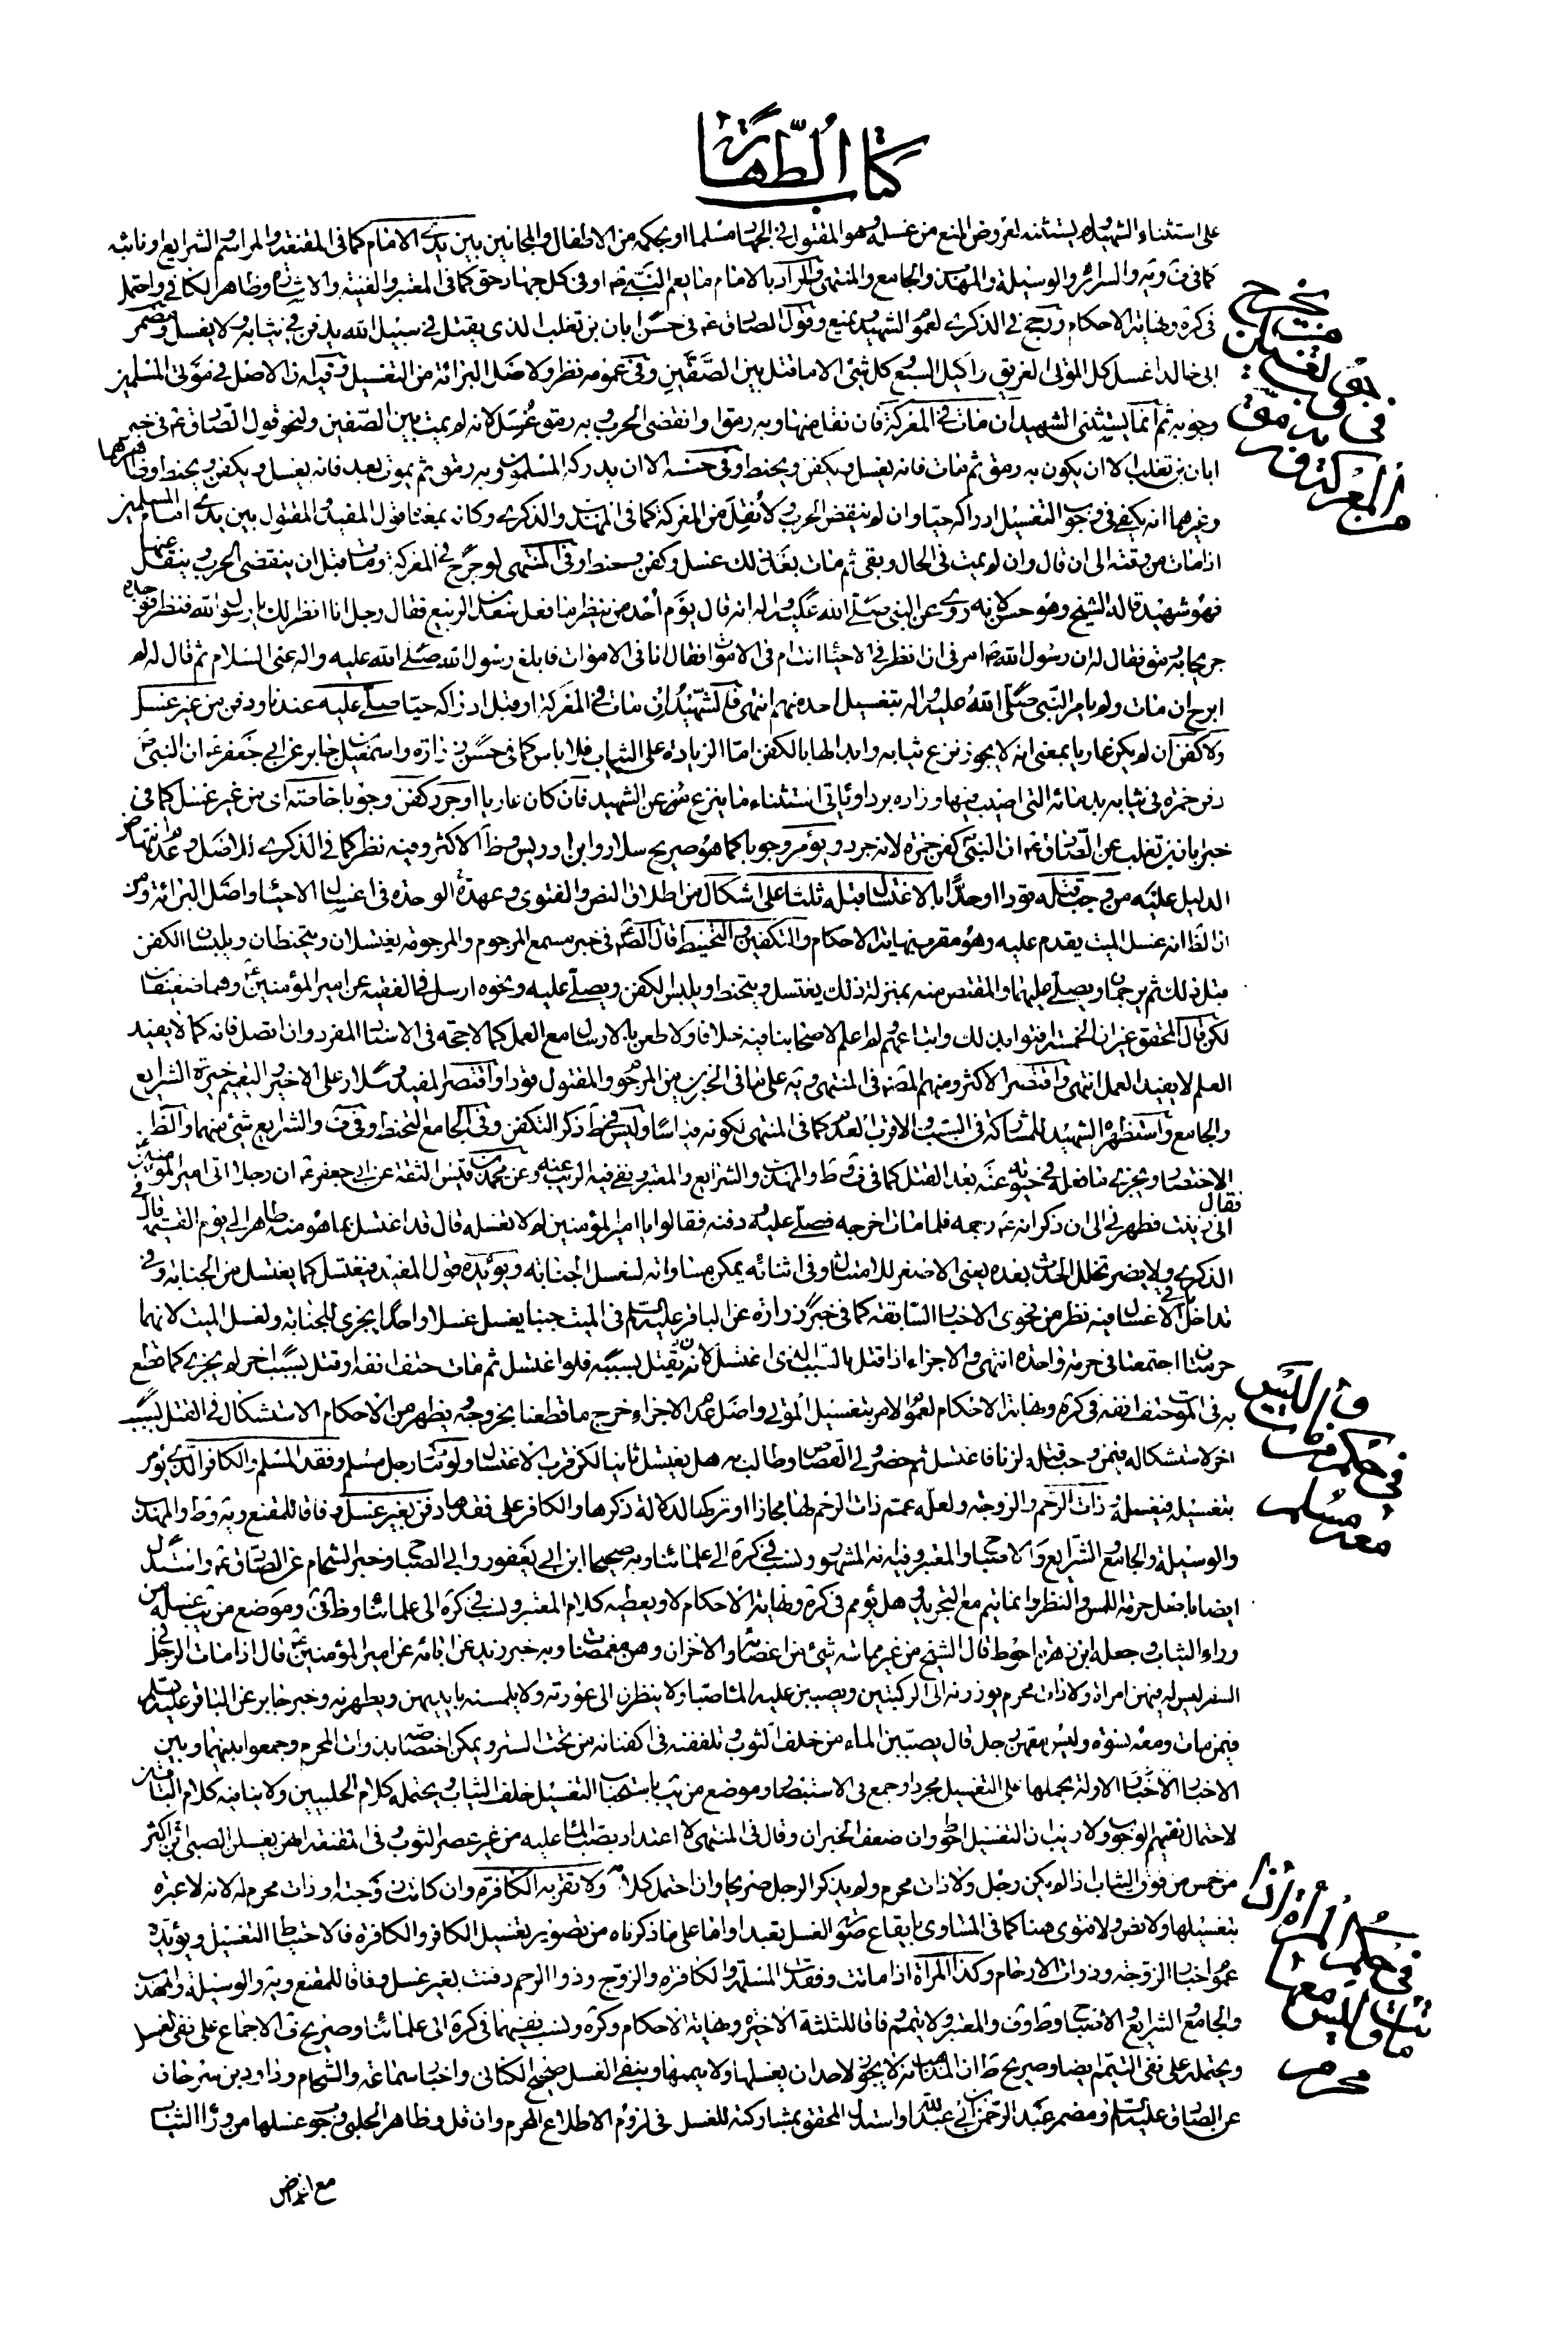 كتاب الطهارة
على استثناء الشهيد ولم يستثنه لعروض المنع من غسله وهو المقتول في الجهاد مسلما او بحكمه من الاطفال والمجانين بين يدي الامام كما في المقنعة والمراسم والشرايع او نائبه
كما في ف ويه والسرائر والوسيلة والمهذب والجامع والمنتهى والمراد بالامام ما يعم النبي ص او في كل جهاد حق كما في المعتبر والغنية والاشارة وظاهر الكافي واحتمل
في كرة ونهاية الاحكام ورجح في الذكرى لعموم الشهيد بمنع وقول الصادق ع في حسن ابان بن تغلب الذي يقتل في سبيل الله يدفن في ثيابه ولا يغسل ومضمر
ابي خالد اغسل كل الموتى الغريق واكيل السبع كل شئ الا ما قتل بين الصفين وفي عمومه نظر ولاصل البرائة من التغسيل وفيه ان الاصل في موتى المسلمين
وجوبه ثم انما يستثنى الشهيد ان مات في المعركة فان نقل منها وبه رمق او انقضى الحرب وبه رمق غسل لانه لم يمت بين الصفين ولنحو قول الصادق ع في خبر
ابان بن تغلب الا ان يكون به رمق ثم مات فانه يغسل ويكفن ويحنط وفي حسنه الا ان يدركه المسلمون وبه رمق ثم يموت بعد فانه يغسل ويكفن ويحنط وظاهرهما
وغيرهما انه يكفي في وجوب التغسيل ادراكه حيا وان لم ينقض الحرب ولا نقل من المعركة كما في المهذب والذكرى وكانه بمعناه قول المفيد والمقتول بين يدي امام المسلمين
اذا مات من وقته الى ان قال وان لم يمت في الحال وبقى ثم مات بعد ذلك غسل وكفن وحنط وفي المنتهى لو جرح في المعركة ومات قبل ان ينقضى الحرب وينقل عنها
فهو شهيد قاله الشيخ وهو حسن لانه روى عن النبي صلى الله عليه واله انه قال يوم احد من ينظر ما فعل سعد بن الربيع فقال رجل انا انظر لك يا رسول الله فنظر فوجده
جريحا به رمق فقال له ان رسول الله ص امرني ان انظر في الاحياء انت ام في الاموات فقال انا في الاموات فابلغ رسول الله صلى الله عليه واله عنى السلام ثم قال له لم
ابرح ان مات ولم يامر النبي صلى الله عليه واله بتغسيل احد منهم انتهى فالشهيد ان مات في المعركة او قبل ادراكه حيا صلى عليه عندنا ودفن من غير غسل
ولا كفن ان لم يكن عاريا بمعنى انه لا يجوز نزع ثيابه وابدالها بالكفن اما الزيادة على الثياب فلا باس كما في حسن زرارة واسمعيل بن جابر عن ابي جعفر ع ان النبي ص
دفن حمزة في ثيابه بدمائه التي اصيب فيها وزاده بردا وياتي استثناء ما ينزع عن الشهيد فان كان عاريا اوجرد كفن وجوبا خاصة اى من غير غسل كما في
خبر ابان بن تغلب عن الصادق ع ان النبي كفن حمزة لانه جرد ويؤمر وجوبا كما هو صريح سلار وابن ادريس وظ الاكثر وفيه نظر كما في الذكرى للاصل وعدم انتهاض
الدليل عليه من وجب قتله قودا او حدا بالاغتسال قبله ثلثا على اشكال من اطلاق النص والفتوى وعهدة الوحدة في اغسال الاحياء واصل البرائة ومن
ان الظ انه غسل الميت يقدم عليه وهو مقرب نهاية الاحكام والتكفين والتحنيط قال الص ع في خبر مسمع المرجوم والمرجومة يغتسلان ويتحنطان ويلبسان الكفن
قبل ذلك ثم يرجمان ويصلى عليهما والمقتص منه بمنزلة ذلك يغتسل ويتحنط ويلبس الكفن ويصلى عليه ونحوه ارسل في الفقيه عن امير المؤمنين ع وهما ضعيفان
لكن قال المحقق ان الخمسة افتوا بذلك واتباعهم ولم اعلم لاصحابنا فيه خلافا ولا طعن بالارسال مع العمل كما لا حجة في الاسناد المفرد وان اتصل فانه كما لا يفيد
العلم لا يفيد العمل انتهى واقتصر الاكثر ومنهم المصنف في المنتهى ويه على ما في الخبرين من المرجوم والمقتول قودا واقتصر المفيد وسلار على الاخير والتعميم خيرة الشرايع
والجامع واستظهره الشهيد للمشاركة في السبب والاقرب العدم كما في المنتهى لكونه قياسا وليس في ط ذكر التكفين وفي الجامع التحنط وفي ف والشرايع شئ منهما والظ
الاختصار ويجزي ما فعله في حيوته عنه بعد القتل كما في ف وط والمهذب والشرايع والمعتبر ونفى فيه الريب عنه وعن محمد بن قيس الثقة عن ابي جعفر ع ان رجلا اتى امير المؤمنين ع فقال
اني زنيت فطهرني الى ان ذكر انه ع رجمه فلما مات اخرجه فصلى عليه ودفنه فقالوا يا امير المؤمنين لم لا تغسله قال قد اغتسل بما هو منه طاهر الى يوم القيمة قال في
الذكرى ولا يضر تخلل الحدث بعده يعنى الاصغر للامتثال وفي اثنائه يمكن مساواته لغسل الجنابة ويؤيده قول المفيد فيغتسل كما يغتسل من الجنابة وفي
تداخل باقي الاغسال فيه نظر من فحوى الاخبار السابقة كما في خبر زرارة عن الباقر عليه السلم في الميت جنبا يغسل غسلا واحدا يجزى للجنابة ولغسل الميت لانهما
حرمتان اجتمعتا في حرمة واحدة انتهى ثم الاجزاء اذا قتل بالسبب الذى اغتسل لان يقتل بسببه فلو اغتسل ثم مات حتف انفه او قتل بسبب اخر لم يجزى كما قطع
به في الموت حتف انفه في كرة ونهاية الاحكام لعموم الامر بتغسيل الموتى واصل عدم الاجزاء خرج ما قطعنا بخروجه ويظهر من الاحكام الاستشكال في القتل بسبب
اخر لاستشكاله فيمن وجب قتله لزنا فاغتسل ثم حضر ولى القصاص وطالب به هل يغتسل ثانيا لكن قرب الاغتسال ولو مات رجل مسلم وفقد المسلم والكافر الذى يؤمر
بتغسيله فيغسله وذات الرحم والزوجة ولعله عمم ذات الرحم لها مجازا او تركها لدلالة ذكرها والكافر على فقدها دفن بغير غسل وفاقا للمقنع ويه وط والمهذب
والوسيلة والجامع والشرايع والاصباح والمعتبر وفيه انه المشهور ونسب في كرة الى علمائنا وبه صحيحا ابن ابي يعفور وابي الصباح وخبر الشحام عن الصادق ع واستدل
ايضا باصل حرمة اللمس والنظر وانما يتم مع التجريد وهل يؤمم في كرة ونهاية الاحكام لا ويعطيه كلام المعتبر ونسب في كرة الى علمائنا وظ ف وموضع من يب غسله من
وراء الثياب وجعله ابن زهرة احوط قال الشيخ من غير مماسة شئ من اعضائه والاخران وهن مغمضات وبه خبر زيد عن ابائه عن امير المؤمنين ع قال اذا مات الرجل في
السفر ليس له فيهن امراة ولا ذات محرم يوزرنه الى الركبتين ويصببن عليه الماء صبا ولا ينظرن الى عورته ولا يلمسنه بايديهن ويطهرنه وخبر جابر عن الباقر عليه السلم
فيمن مات ومعه نسوة وليس معهن رجل قال يصببن الماء من خلف الثوب ويلففنه في اكفانه من تحت الستر ويمكن اختصاصه بذوات المحرم وجمعوا بينهما وبين
الاخبار الاولة بحملها على التغسيل مجردا وجمع في الاستبصار وموضع من يب باستحباب التغسيل خلف الثياب ويحتمله كلام الحلبيين ولا ينافيه كلام الباقين
لاحتمال نفيهم الوجوب ولا ريب ان التغسيل احوط وان ضعف الخبران وقال في المنتهى لا اعتداد بصب الماء عليه من غير عصر الثوب وفي المقنعة انهن يغسلن الصبى ابن اكثر
من خمس من فوق الثياب اذا لم يكن رجل ولا ذات محرم ولم يذكر الرجل صريحا وان احتمل كلامه ولا تقربه الكافرة وان كانت زوجته او ذات محرم له لانه لا عبرة
بتغسيلها ولا نص ولا فتوى هنا كما في المتساوى بايقاع صورة الغسل تعبدا واما على ما ذكرناه من تصوير تغسيل الكافر والكافرة فالاحتياط التغسيل ويؤيده
عموم اخبار الزوجة وذوات الارحام وكذا المراة اذا ماتت وفقدت المسلمة والكافرة والزوج وذو الرحم دفنت بغير غسل وفاقا للمقنع ويه والوسيلة والمهذب
والجامع والشرايع والاصباح وط وف والمعتبر ولا تيمم وفاقا للثلثة الاخيرة ونهاية الاحكام وكرة ونسب نفيهما في كرة الى علمائنا وصريح ف الاجماع على نفى الغسل
ويحتمله على نفى التيمم ايضا وصريح ط ان المذهب انه لا يجوز لاحد ان يغسلها ولا ييممها وبنفى الغسل صحيح الكنانى واخبار سماعة والشحام وداود بن سرحان
عن الصادق عليه السلم ومضمر عبد الرحمن بن ابي عبد الله واستدل المحقق بمشاركته للغسل في لزوم الاطلاع المحرم وان قل وظاهر الحلبى وجوب غسلها من وراء الثياب
مع اغماض
في حكم من مات وليس معه مسلم
في حكم المراة اذا ماتت وليس معها محرم